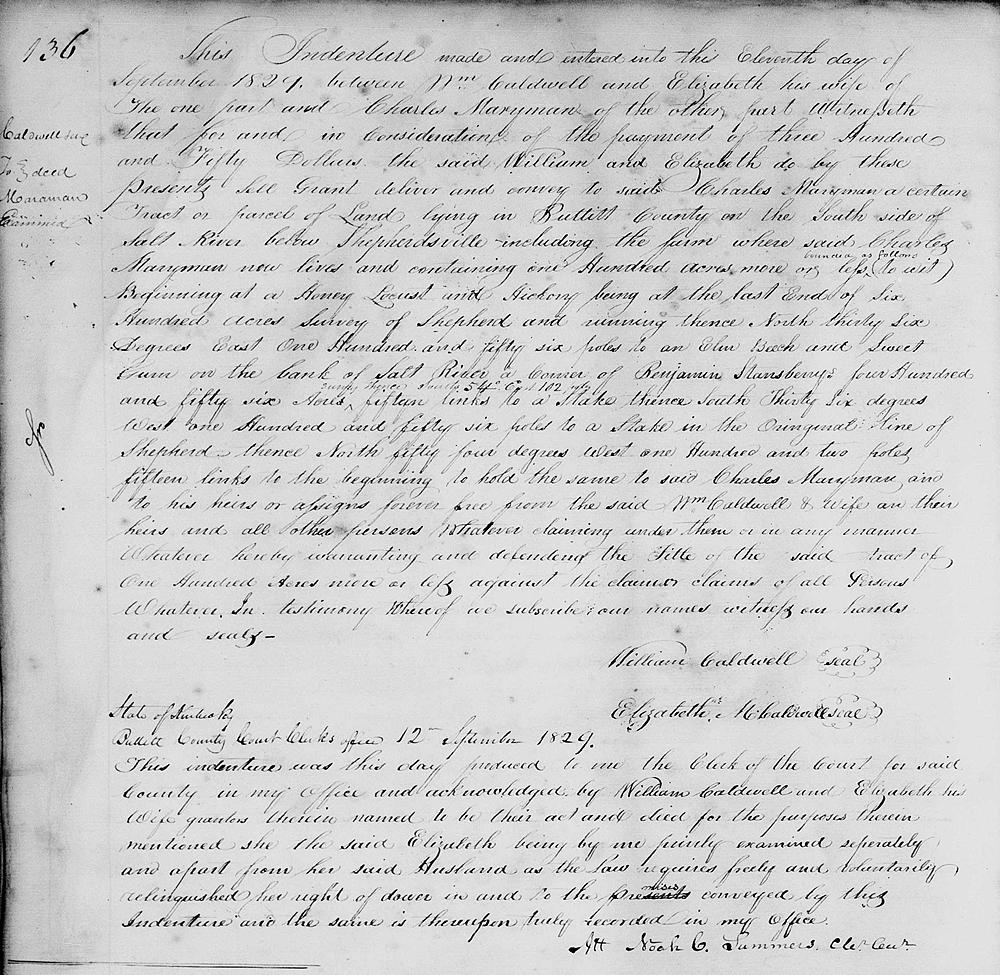 136
This Indenture made and entered into this Eleventh day of
September 1829. between Wm Caldwell and Elizabeth his wife of
The one part and Charles Maryman of the other part Witnesseth
that for and in Consideration of the payment of three Hundred
and Fifty Dollars the said William and Elizabeth do by these
presents Sell Grant deliver and convey to said Charles Maryman a certain
Tract or parcel of Land lying in Bullitt County on the South side of
Salt River below Shepherdsville including the farm where said Charles
bounded as follows
Maryman now lives and containing one Hundred acres more or less (to wit)
Beginning at a Honey Locust and Hickory being at the last End of Six
Hundred acres Survey of Shepherd and running thence North thirty Six
Degrees East One Hundred and fifty six poles to an Elm Beech and Sweet
Gum on the bank of Salt River a Corner of Benjamin Stansberrys four Hundred
thence South 54° East 102 poles
and fifty six Acres fifteen links to a Stake thence South Thirty Six degrees
West one Hundred and fifty six poles to a Stake in the Oringinal Line of
Shepherd - thence North fifty four degrees West one Hundred and two poles
fifteen links to the beginning to hold the same to said Charles Maryman an
to his heirs or assigns forever free from the said Wm Caldwell & Wife an their
heirs and all other persons Whatever claiming under them or in any manner
Whatever hereby warranting and defending the Title of the said tract of
One Hundred Acres more or less against the claim or claims of all Persons
Whatever. In testimony Whereof we subscribe our names witness our hands
and seals -
William Caldwell seal
Elizabeth McCaldwell seal
Caldwell &ux
To } deed
Maraman
Examined
State of Kentucky
Bullitt County Court Clerks office 12th September 1829.
This indenture was this day produced to me the Clerk of the Court for said
County in my Office and acknowledged by William Caldwell and Elizabeth his
Wife grantors therein named to be their act and deed for the purposes therein
mentioned she the said Elizabeth being by me privily examined seperately
and apart from her said Husband as the Law requires freely and voluntarily
relinquished her right of dower in and to the premises conveyed by this
Indenture and the same is thereupon truly recorded in my Office.
Att Noah C. Summers. Clk.